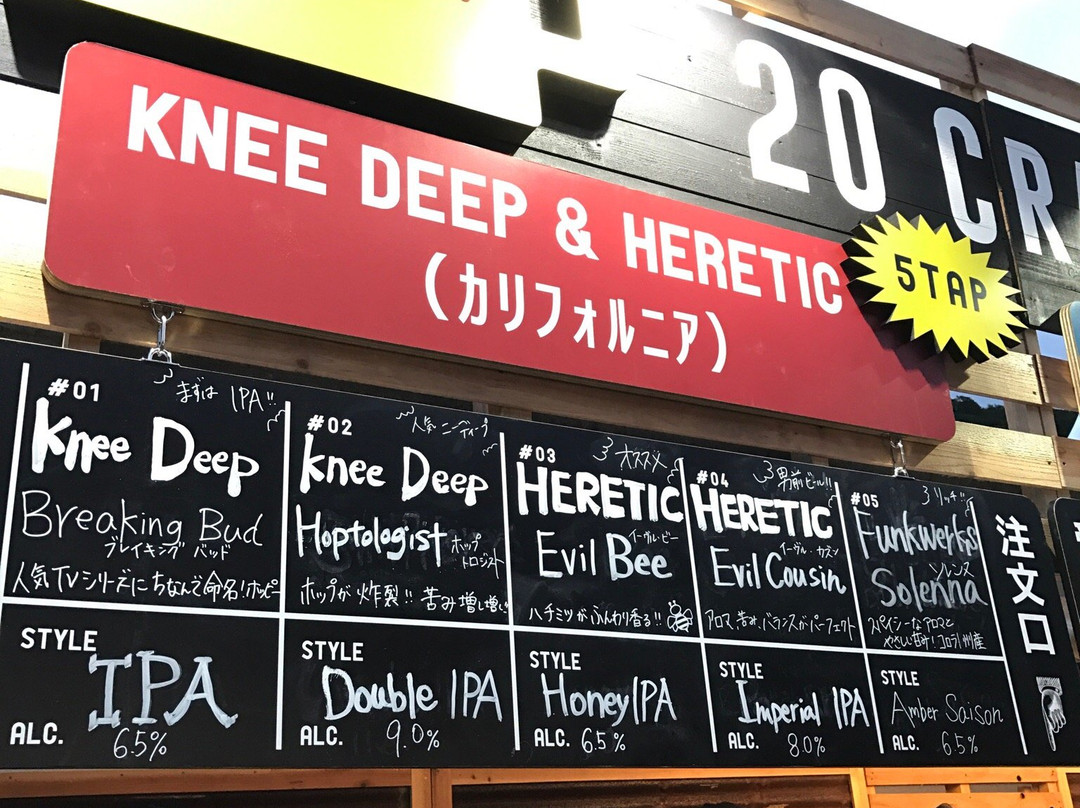 20 CR
KNEE DEEP & HERETIC
(カリフォルニア)
5TAP
#01
まずは IPA!!
Knee Deep
Breaking Bud
ブレイキング バッド
人気TVシリーズにちなんで命名!ホッピー
STYLE
IPA
ALC. 6.5%
#02
人気
Knee Deep
Hoptologist
ホップ
トロジスト
ホップが炸裂!! 苦み増し増し
STYLE
Double IPA
ALC. 9.0%
#03
オススメ
HERETIC
イーヴル・ビー
Evil Bee
ハチミツがふんわり香る!!
STYLE
Honey IPA
ALC. 6.5%
#04
男前ビール!!
HERETIC
イーヴル・カズン
Evil Cousin
アロマ、苦み、バランスがパーフェクト
STYLE
Imperial IPA
ALC. 8.0%
#05
リッチ!!
Funkwerks
ソレンス
Solenna
スパイシーなアロマと
やさしい甘み!コロラド州産
STYLE
Amber Saison
ALC. 6.5%
注文口